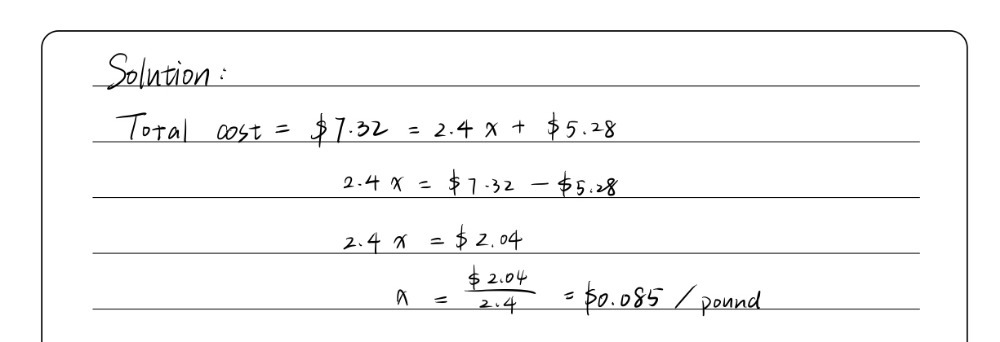 Solution:
Total cost = $7.32 = 2.4 x + $5.28
2.4 x = $7.32 - $5.28
2.4 x = $2.04
x = $2.04/2.4 = $0.085 / pound